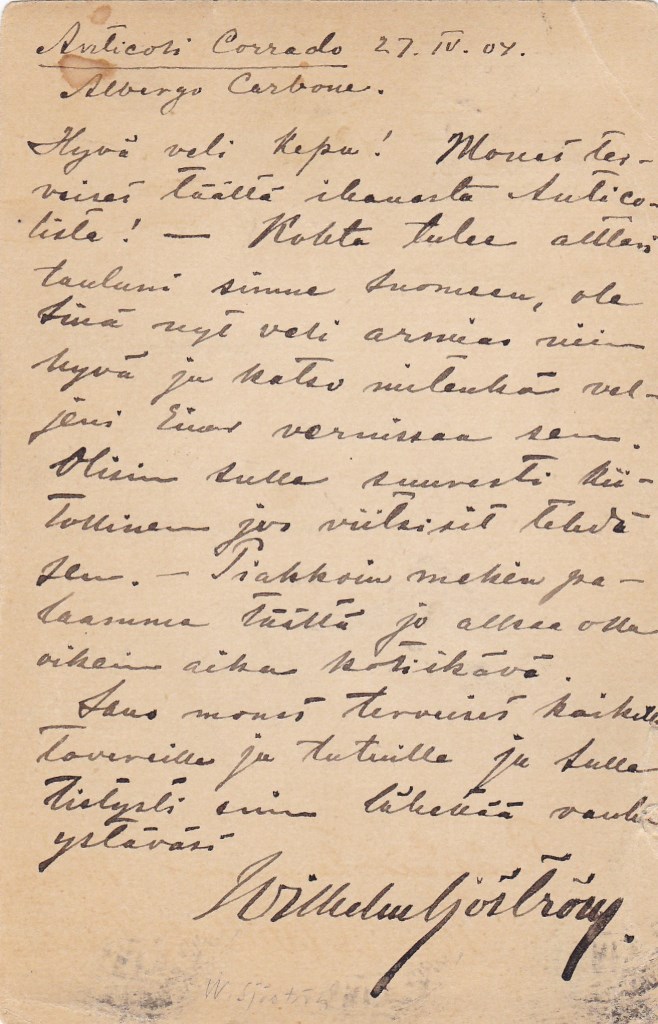 Anticoli Corrado 27. IV. 04.
Albergo Carbone.
Hyvä veli Kepu! Monet ter-
veiset täältä ihanasta Antico-
lista! — Kohta tulee alttari
tauluni sinne Suomeen, ole
Sinä nyt veli armias niin
hyvä ja katso mitenkä vel-
jeni Einar vernissaa sen.
Olisin sulle suuresti kii-
tollinen jos viitsisit tehdä
sen. — Piakkoin mekin pa-
laamme täältä jo alkaa olla
oikein aika kotiikävä.
Sano monet terveiset kaikille
tovereille ja tutuille ja Sulle
tistysti sinn lähettää vanha
ystäväsi
Wilhelm Sjöström.
W. Sjöström